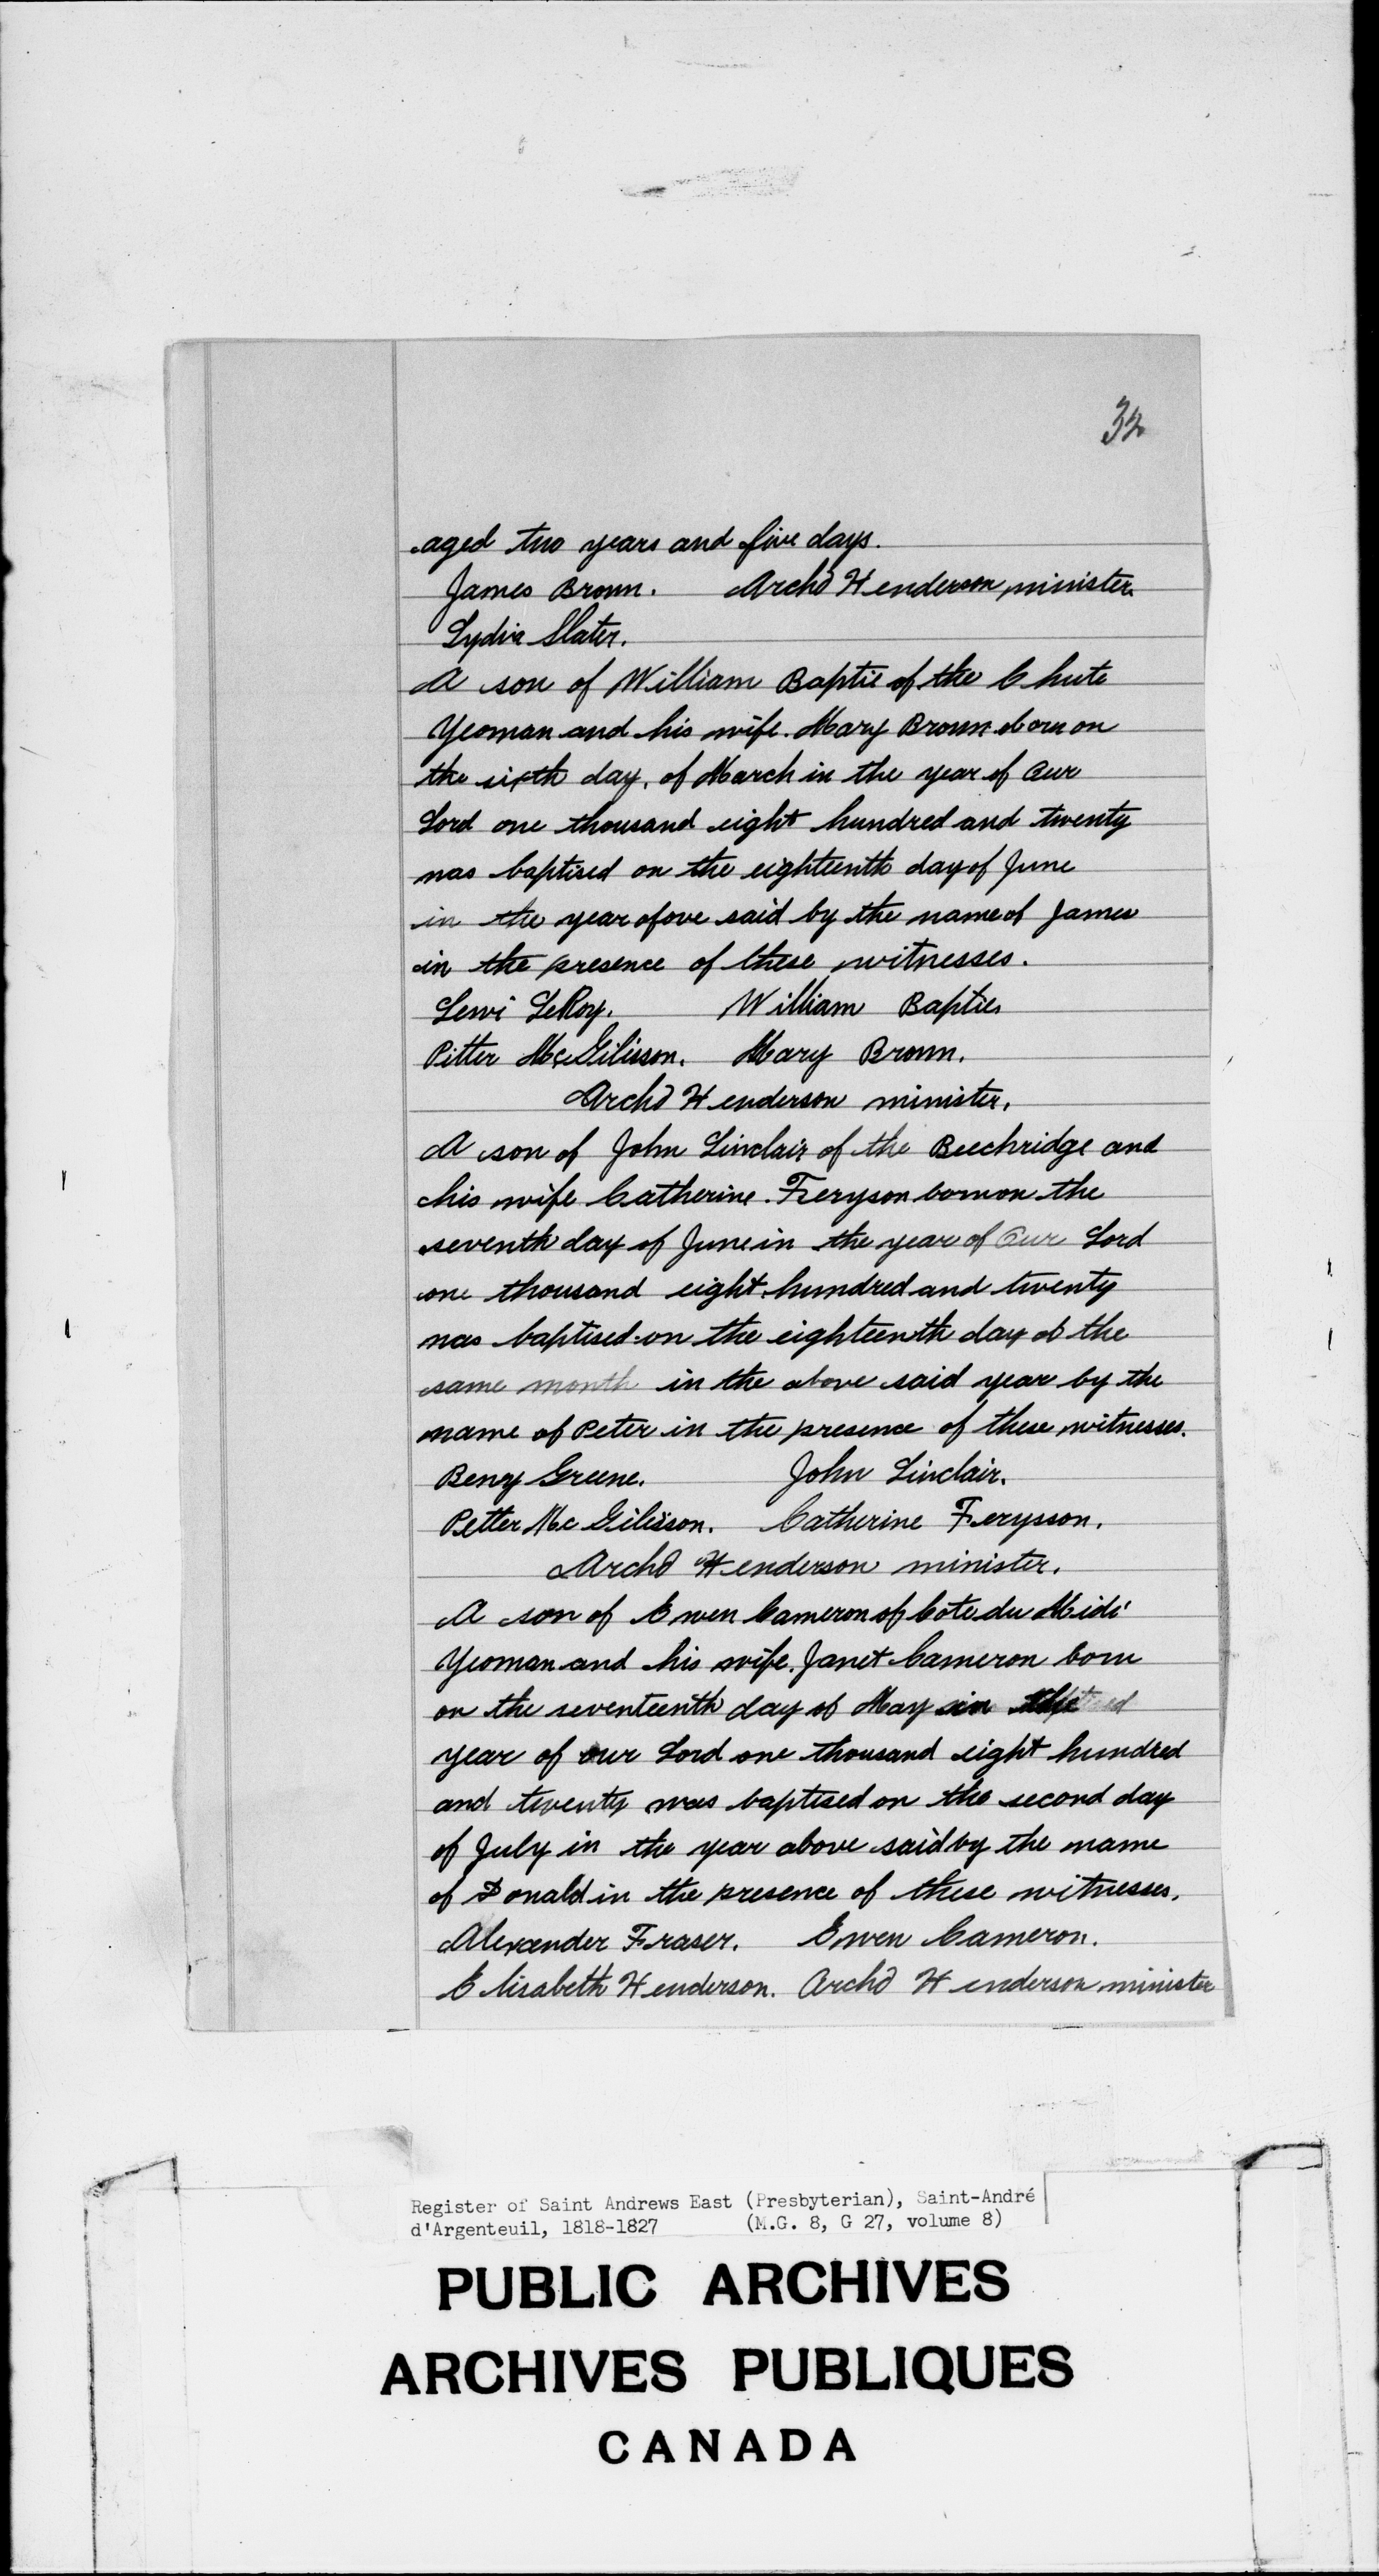 32
aged two years and five days.
James Brown. Archd Henderson minister.
Lydia Slater.
A son of William Baptie of the Chute
Yeoman and his wife. Mary Brown born on
the sixth day, of March in the year of Our
Lord one thousand eight hundred and twenty
was baptised on the eighteenth day of June
in the year afove said by the name of James
in the presence of these witnesses.
Lewi LeRoy. William Baptie
Pitter McGilisson. Mary Brown.
Archd Henderson minister.
A son of John Sinclair of the Beechridge and
his wife Catherine Feryson born on the
seventh day of June in the year of Our Lord
one thousand eight hundred and twenty
was baptised on the eighteenth day of the
same month in the above said year by the
name of Peter in the presence of these witnesses.
Beny Greene. John Sinclair.
Petter McGilisson. Catherine Ferysson.
Archd Henderson minister.
A son of Ewen Cameron of Cote du Midi
Yeoman and his wife. Janet Cameron born
on the seventeenth day of May in the
year of our Lord one thousand eight hundred
and twenty was baptised on the second day
of July in the year above said by the name
of Donald in the presence of these witnesses.
Alexander Fraser. Ewen Cameron.
Elisabeth Henderson. Archd Henderson minister
Register of Saint Andrews East (Presbyterian), Saint-André
d'Argenteuil, 1818-1827 (M.G. 8, G 27, volume 8)
PUBLIC ARCHIVES
ARCHIVES PUBLIQUES
CANADA